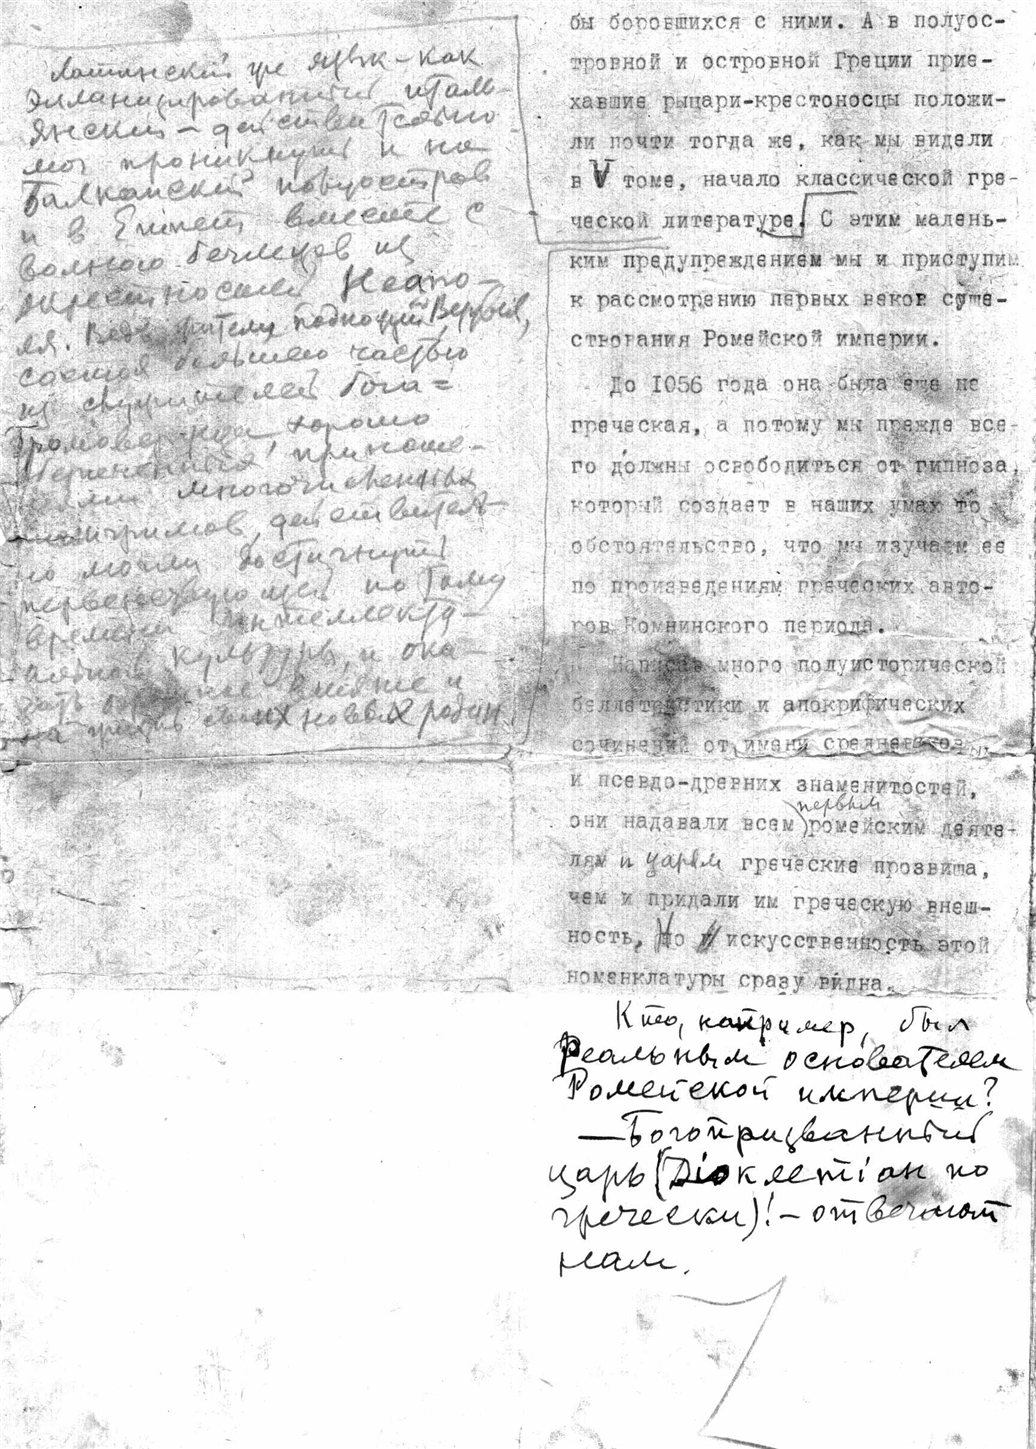 Латинский же язык – как
элланизированный италь-
янский – действительно
мог проникнуть и на
Балканский полуостров
и в Египет вместе с
волною беглецов из
окрестностей Неапо-
ля. Ведь жители подножий Везувия,
состоя большею частью
из служителей бога=
Громовержца, хорошо
приноше-
ниями многочисленных
пилигримов, действитель-
но могли достигнуть
первенствующей по тому
времени интеллекту-
альной культуры, и ока-
зать влияние и
на жизнь своих новых родин.
бы боровшихся с ними. А в полуос-
тровной и островной Греции прие-
хавшие рыцари-крестоносцы положи-
ли почти тогда же, как мы видели
в V томе, начало классической гре-
ческой литературе. С этим малень-
ким предупреждением мы и приступим
к рассмотрению первых веков суще-
ствования Ромейской империи.
До 1056 года она была еще не
греческая, а потому мы прежде все-
го должны освободиться от гипноза,
который создает в наших умах то
обстоятельство, что мы изучаем ее
по произведениям греческих авто-
ров Комнинского периода.
Написав много полуисторической
беллетристики и апокрифических
сочинений от имени средневековых
и псевдо-древних знаменитостей,
они надавали всем первым ромейским деяте-
лям и царям греческие прозвища,
чем и придали им греческую внеш-
ность, Но искусственность этой
номенклатуры сразу видна.
Кто, например, был
реальным основателем
Ромейской империи?
— Богопризванный
царь (Діоклетіан по
гречески)! – отвечают
нам.